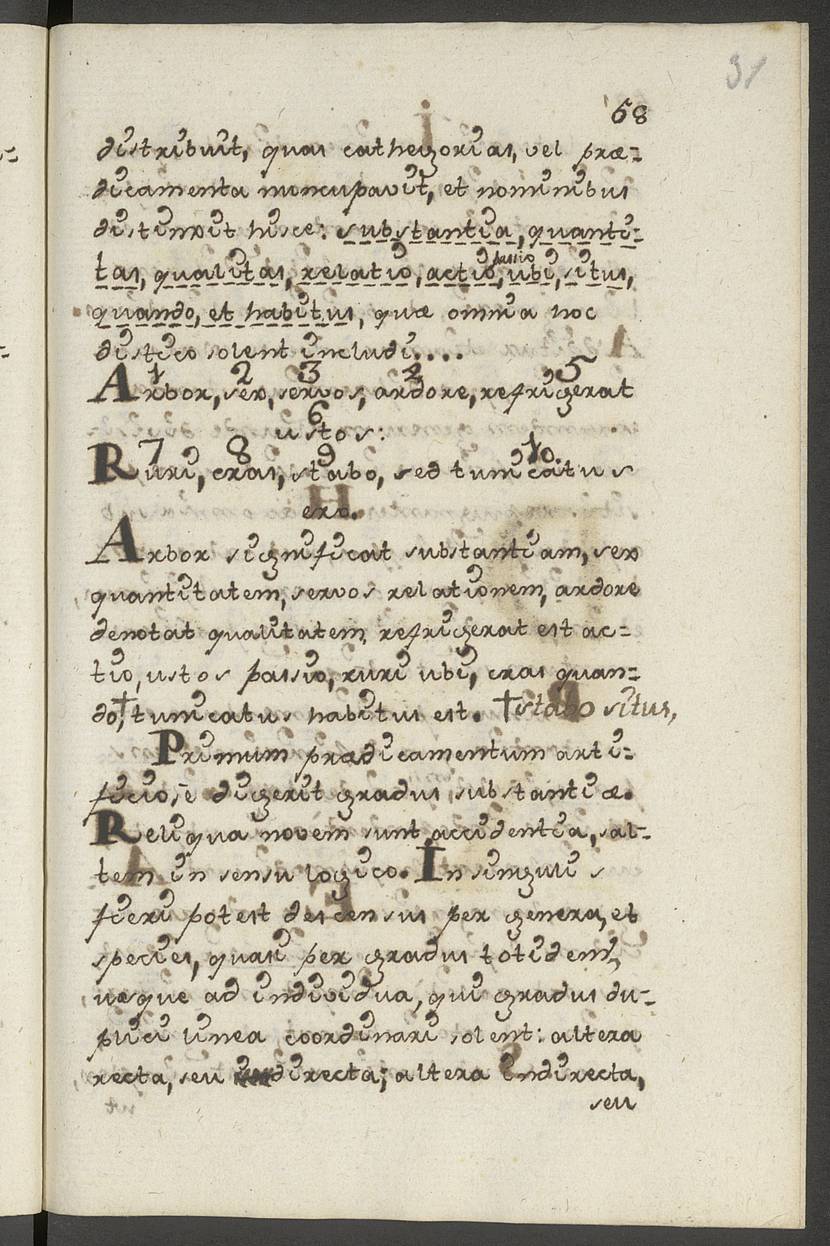 31
68
distribuit, quas cathegorias, vel præ=
dicamenta nuncupavit, et nominibus
distinxit hisce: substantia, quanti=
tas, qualitas, relatio, actio, passio, ubi, situs,
quando, et habitus, quæ omnia hoc
disticho solent includi....
1 2 3 4 5
Arbor, sex, servos, ardore, refrigerat
6
ustos:
7 8 9 10.
Ruri, cras, stabo, sed tunicatus
ero.
Arbor significat substantiam, sex
quantitatem, servos relationem, ardore
denotat qualitatem, refrigerat est ac=
tio, ustos passio, ruri ubi, cras quan=
do,† tunicatus habitus est. †stabo situs,
Primum prædicamentum arti=
ficiose digerit gradus substantiæ.
Reliqua novem sunt accidentia, sal=
tem in sensu logico. In singulis
fieri potest descensus per genera, et
species, quasi per gradus totidem,
usque ad individua, qui gradus du=
plici linea coordinari solent: altera
recta, seu directa; altera indirecta,
seu